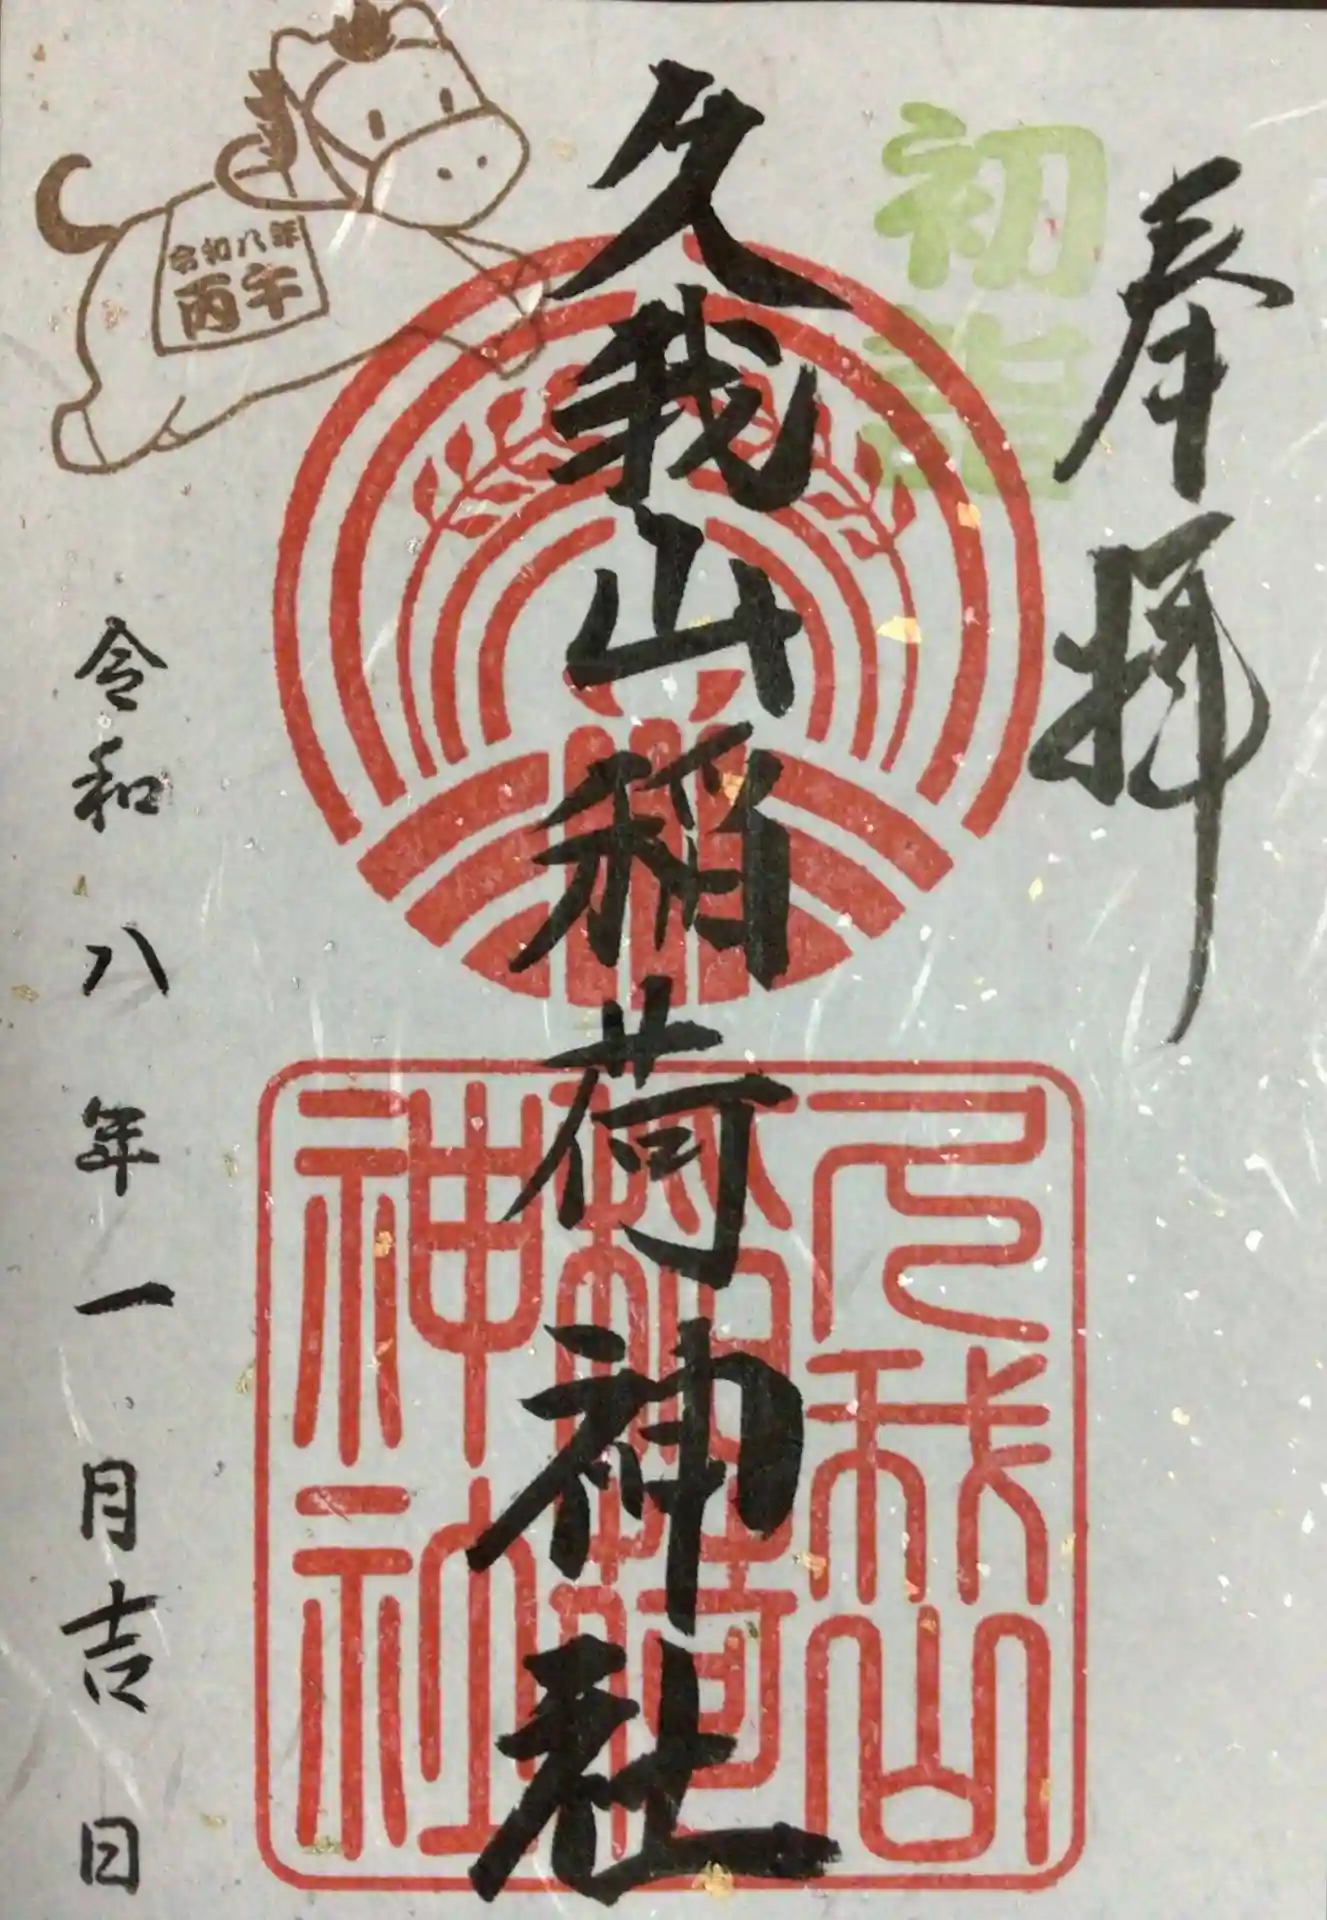 奉拝
初詣
久我山稲荷神社
久我山
稲荷
神社
令和八年
丙午
令和八年一月吉日